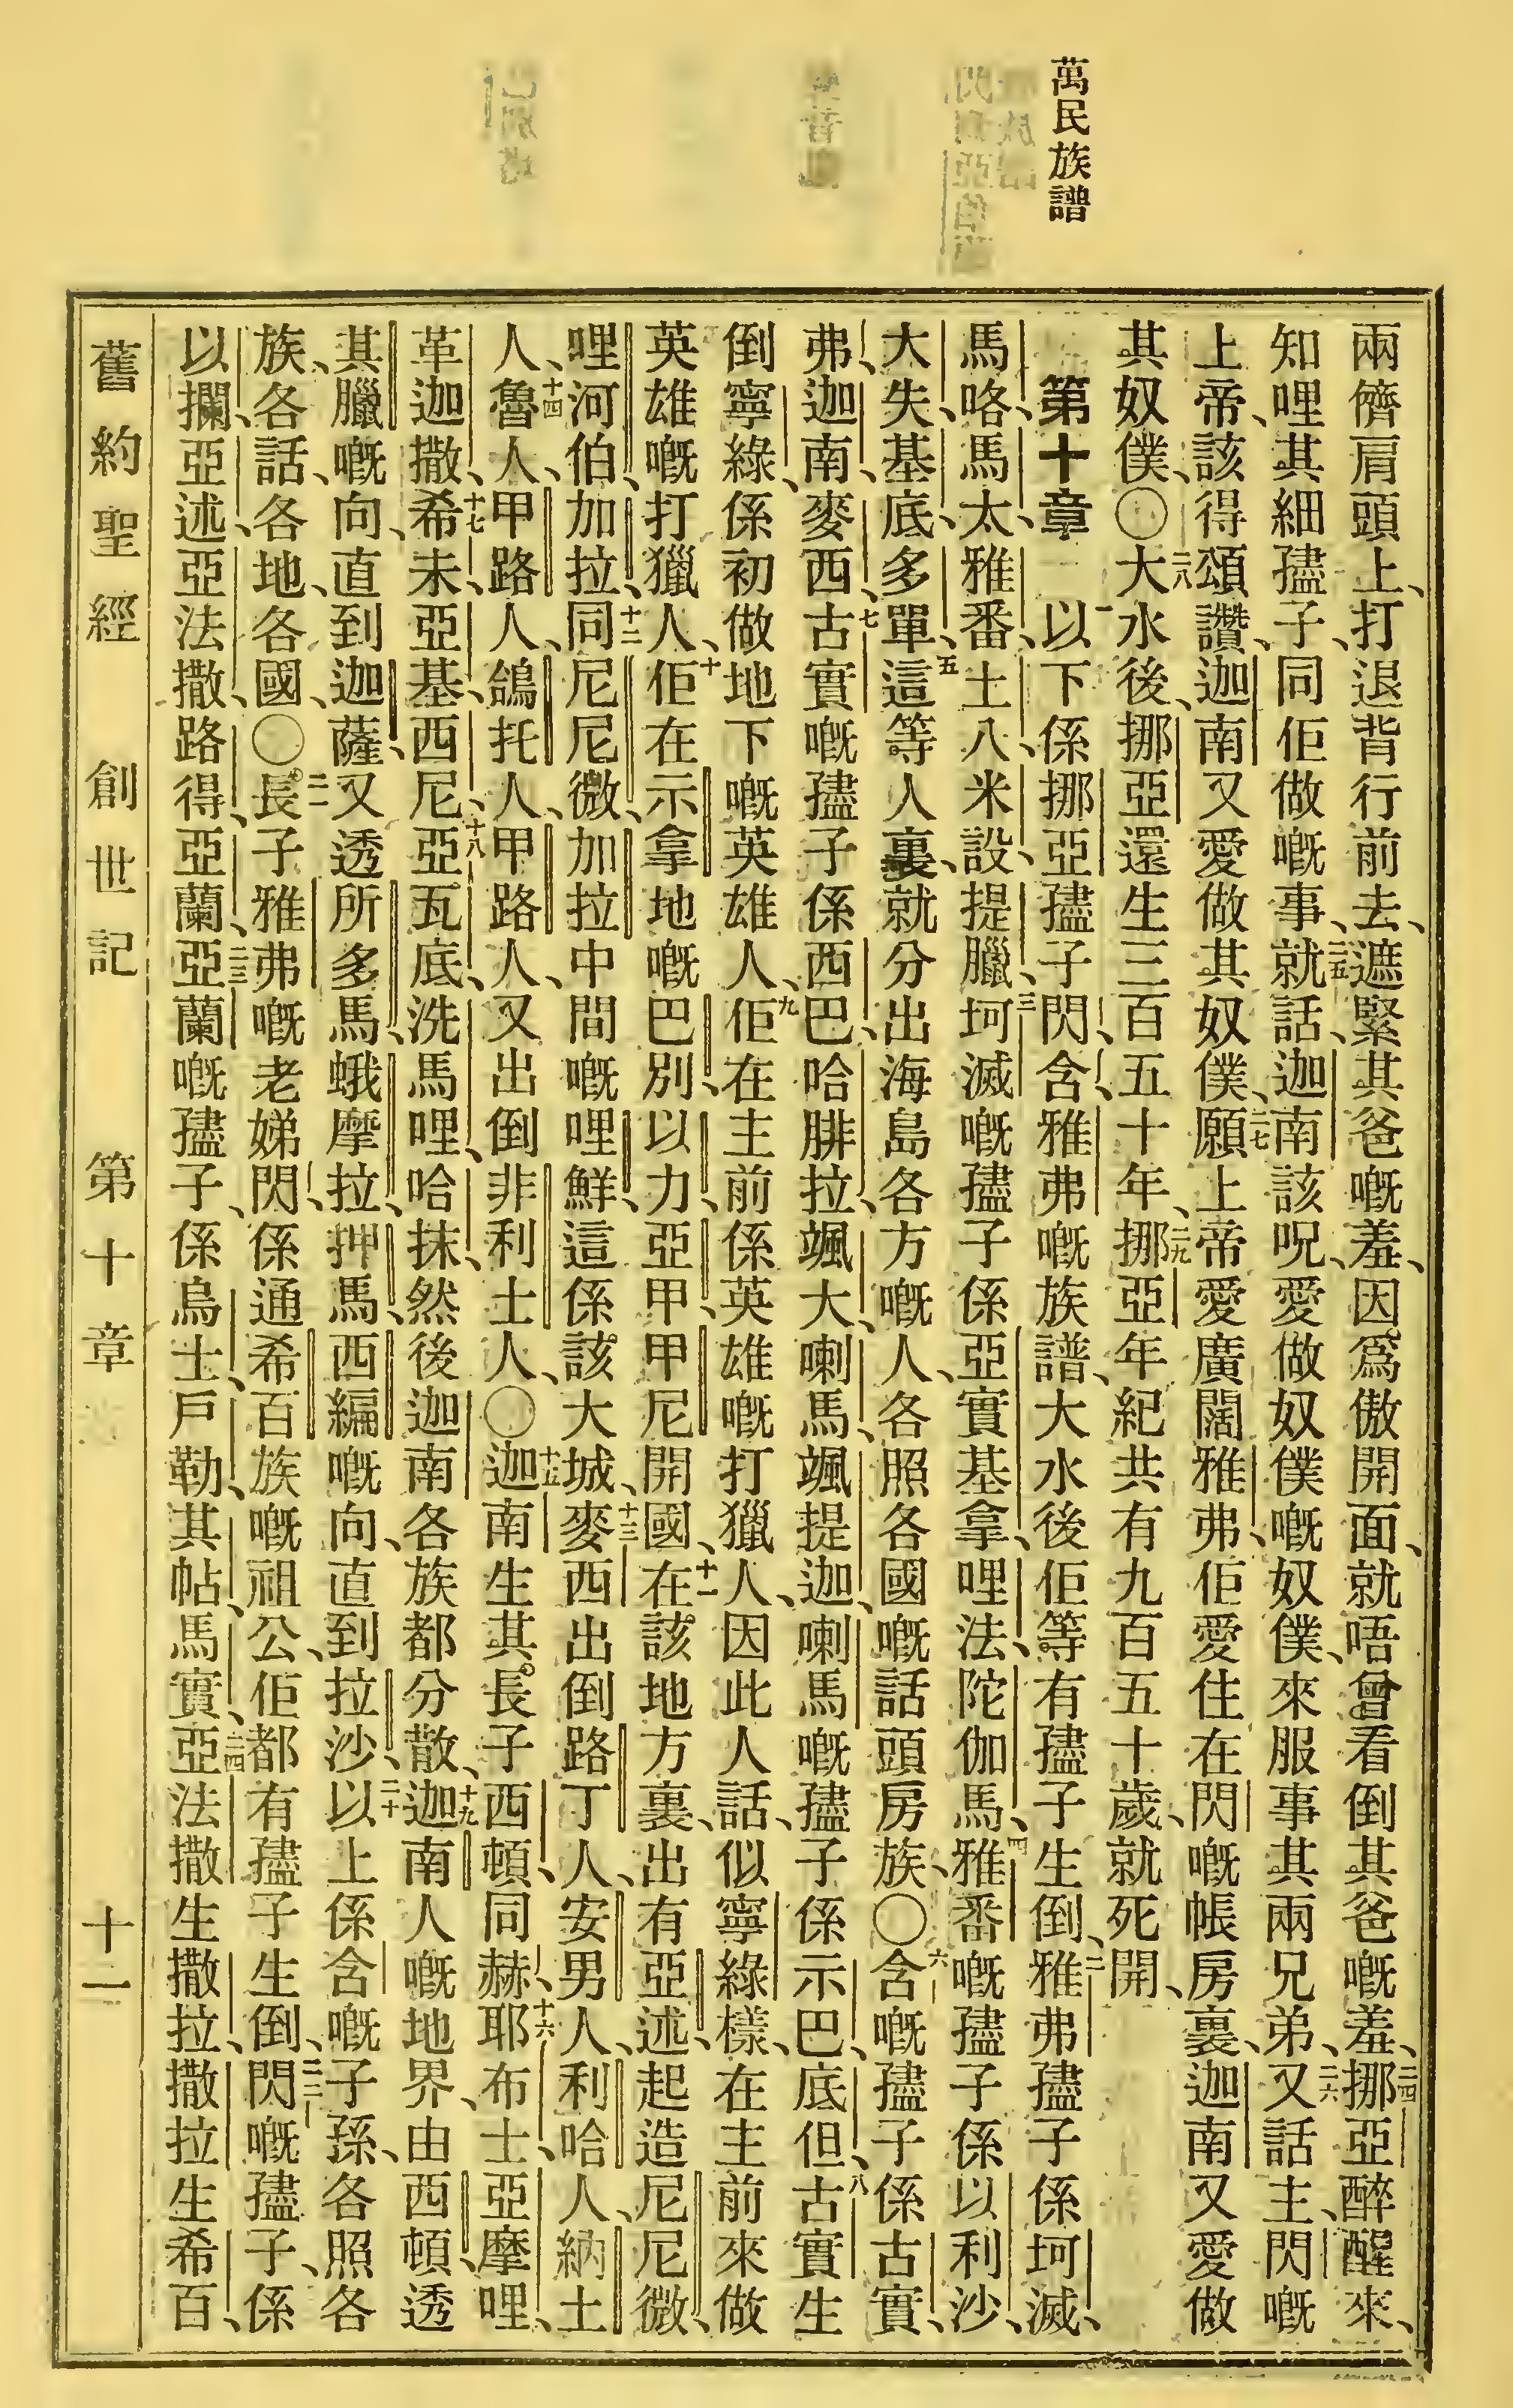 萬民族譜
兩儕肩頭上、打退背行前去、遮緊其爸嘅羞、因爲傲開面、就唔曾看倒其爸嘅羞、二四挪亞醉醒來、
知哩其細孻子、同佢做嘅事、二五就話、迦南該呪、愛做奴僕嘅奴僕、來服事其兩兄弟、二六又話、主、閃嘅
上帝、該得頌讚、迦南又愛做其奴僕、二七願上帝愛廣闊雅弗、佢愛住在閃嘅帳房裏、迦南又愛做
其奴僕、〇二八大水後、挪亞還生三百五十年、二九挪亞年紀共有九百五十歲、就死開、
第十章 一以下係挪亞孻子閃、含、雅弗嘅族譜、大水後佢等有孻子生倒、二雅弗孻子係坷滅、
馬咯、馬太、雅番、土八、米設、提臘、三坷滅嘅孻子係亞實基拿、哩法、陀伽馬、四雅番嘅孻子係以利沙、
大失、基底、多單、五這等人裏、就分出海島各方嘅人、各照各國嘅話頭房族、〇六含嘅孻子係古實、
弗、迦南、麥西、七古實嘅孻子係西巴、哈腓拉、颯大、喇馬、颯提迦、喇馬嘅孻子係示巴、底但、八古實生
倒寧綠、係初做地下嘅英雄人、九佢在主前係英雄嘅打獵人、因此人話、似寧綠樣、在主前來做
英雄嘅打獵人、十佢在示拿地嘅巴別、以力、亞甲、甲尼開國、十一在該地方裏、出有亞述、起造尼尼微、
哩河伯、加拉、十二同尼尼微、加拉中間嘅哩鮮、這係該大城、十三麥西出倒路丁人、安男人、利哈人、納土
人、十四魯人、甲路人、鴿托人、甲路人、又出倒非利士人、〇十五迦南生其長子西頓、同赫、十六耶布士、亞摩哩、
革迦撒、十七希未、亞基、西尼、十八亞瓦底、洗馬哩、哈抹、然後迦南各族都分散、十九迦南人嘅地界、由西頓、透
其臘嘅向、直到迦薩、又透所多馬、蛾摩拉、押馬、西編嘅向、直到拉沙、二十以上係含嘅子孫、各照各
族、各話、各地、各國、〇二一長子雅弗嘅老娣閃、係通希百族嘅祖公、佢都有孻子生倒、二二閃嘅孻子、係
以攔、亞述、亞法撒、路得、亞蘭、二三亞蘭嘅孻子、係烏士、戶勒、其帖、馬實、二四亞法撒生撒拉、撒拉生希百、
舊約聖經 創世記 第十章 十一